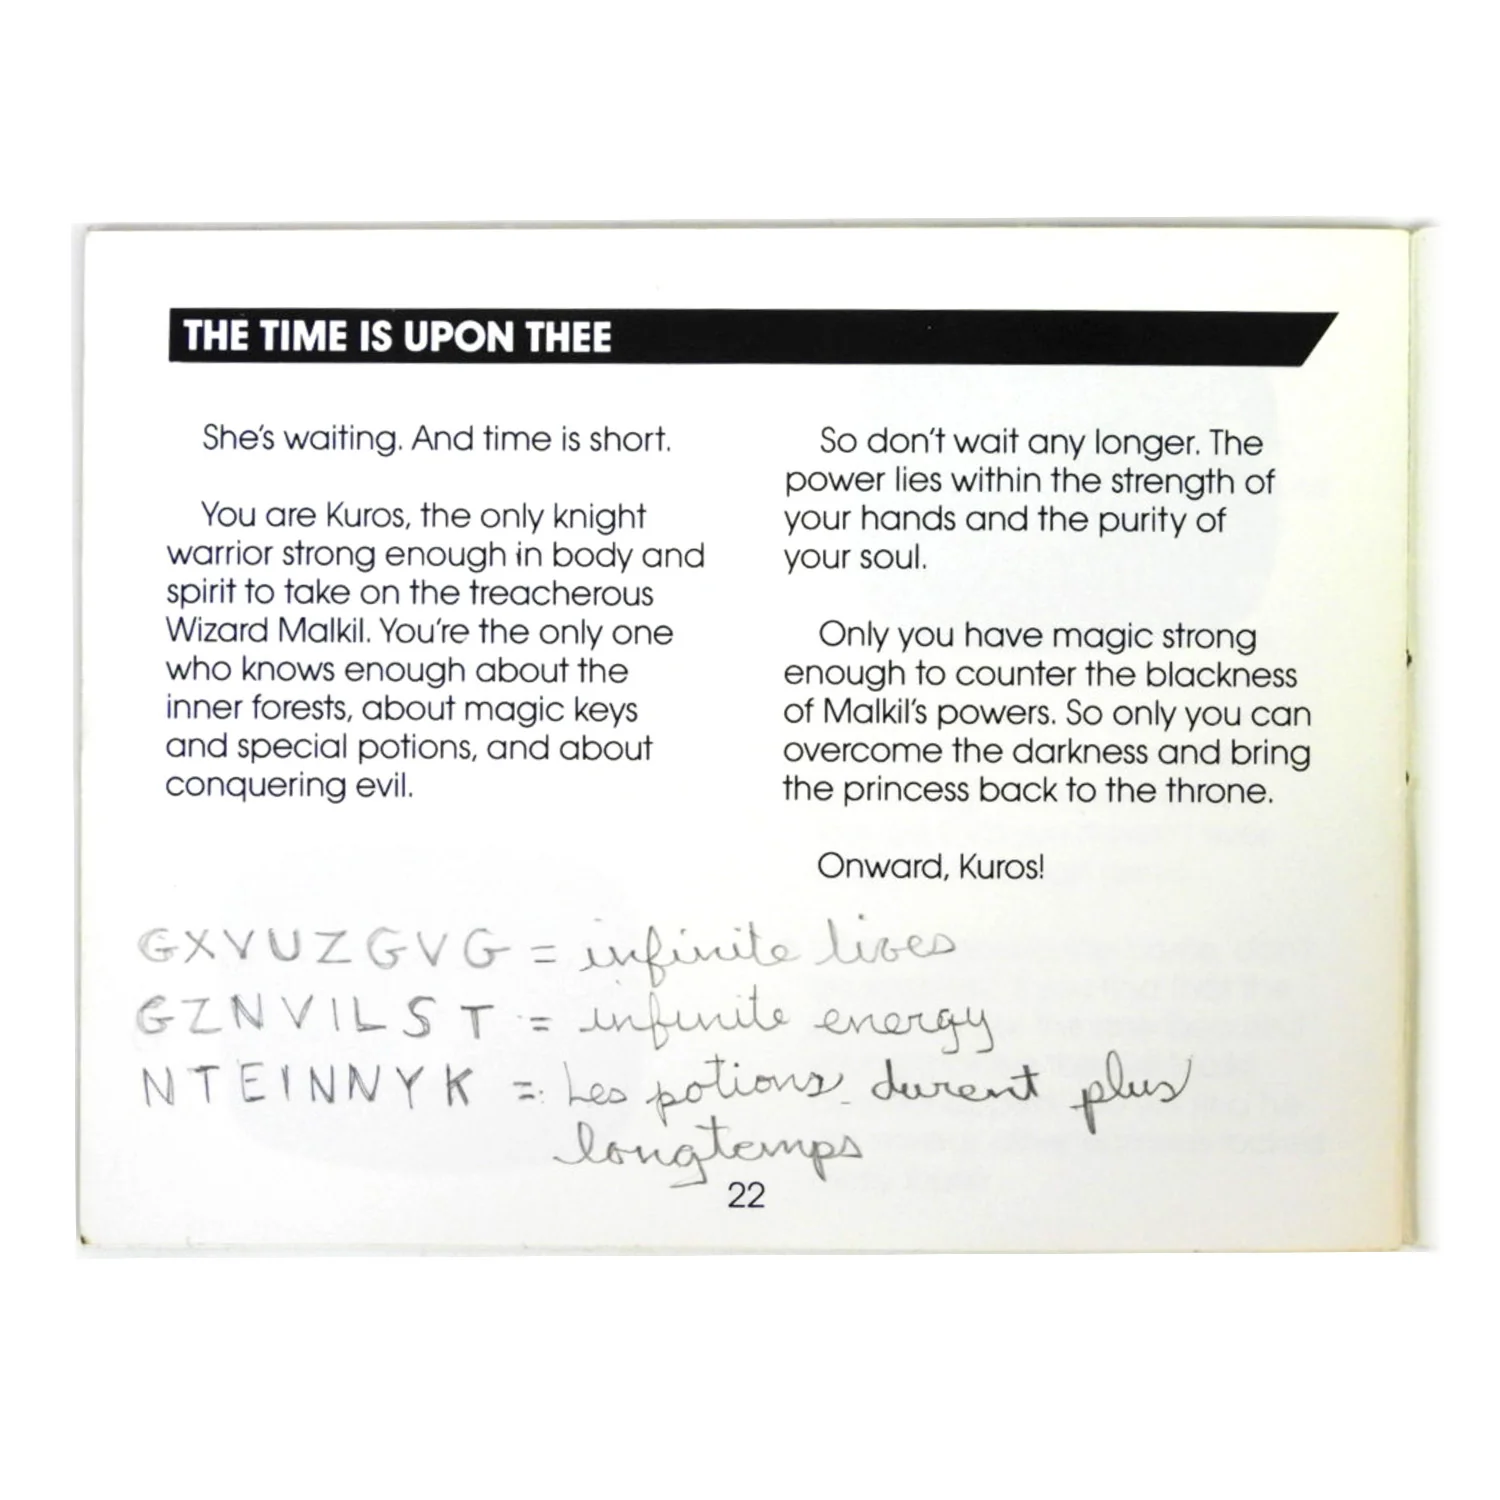 THE TIME IS UPON THEE
She's waiting. And time is short.
You are Kuros, the only knight
warrior strong enough in body and
spirit to take on the treacherous
Wizard Malkil. You're the only one
who knows enough about the
inner forests, about magic keys
and special potions, and about
conquering evil.
So don't wait any longer. The
power lies within the strength of
your hands and the purity of
your soul.
Only you have magic strong
enough to counter the blackness
of Malkil's powers. So only you can
overcome the darkness and bring
the princess back to the throne.
Onward, Kuros!
GXVUZGVG = infinite lives
GZNVILST = infinite energy
NTEINNYK = Les potions durent plus
longtemps
22